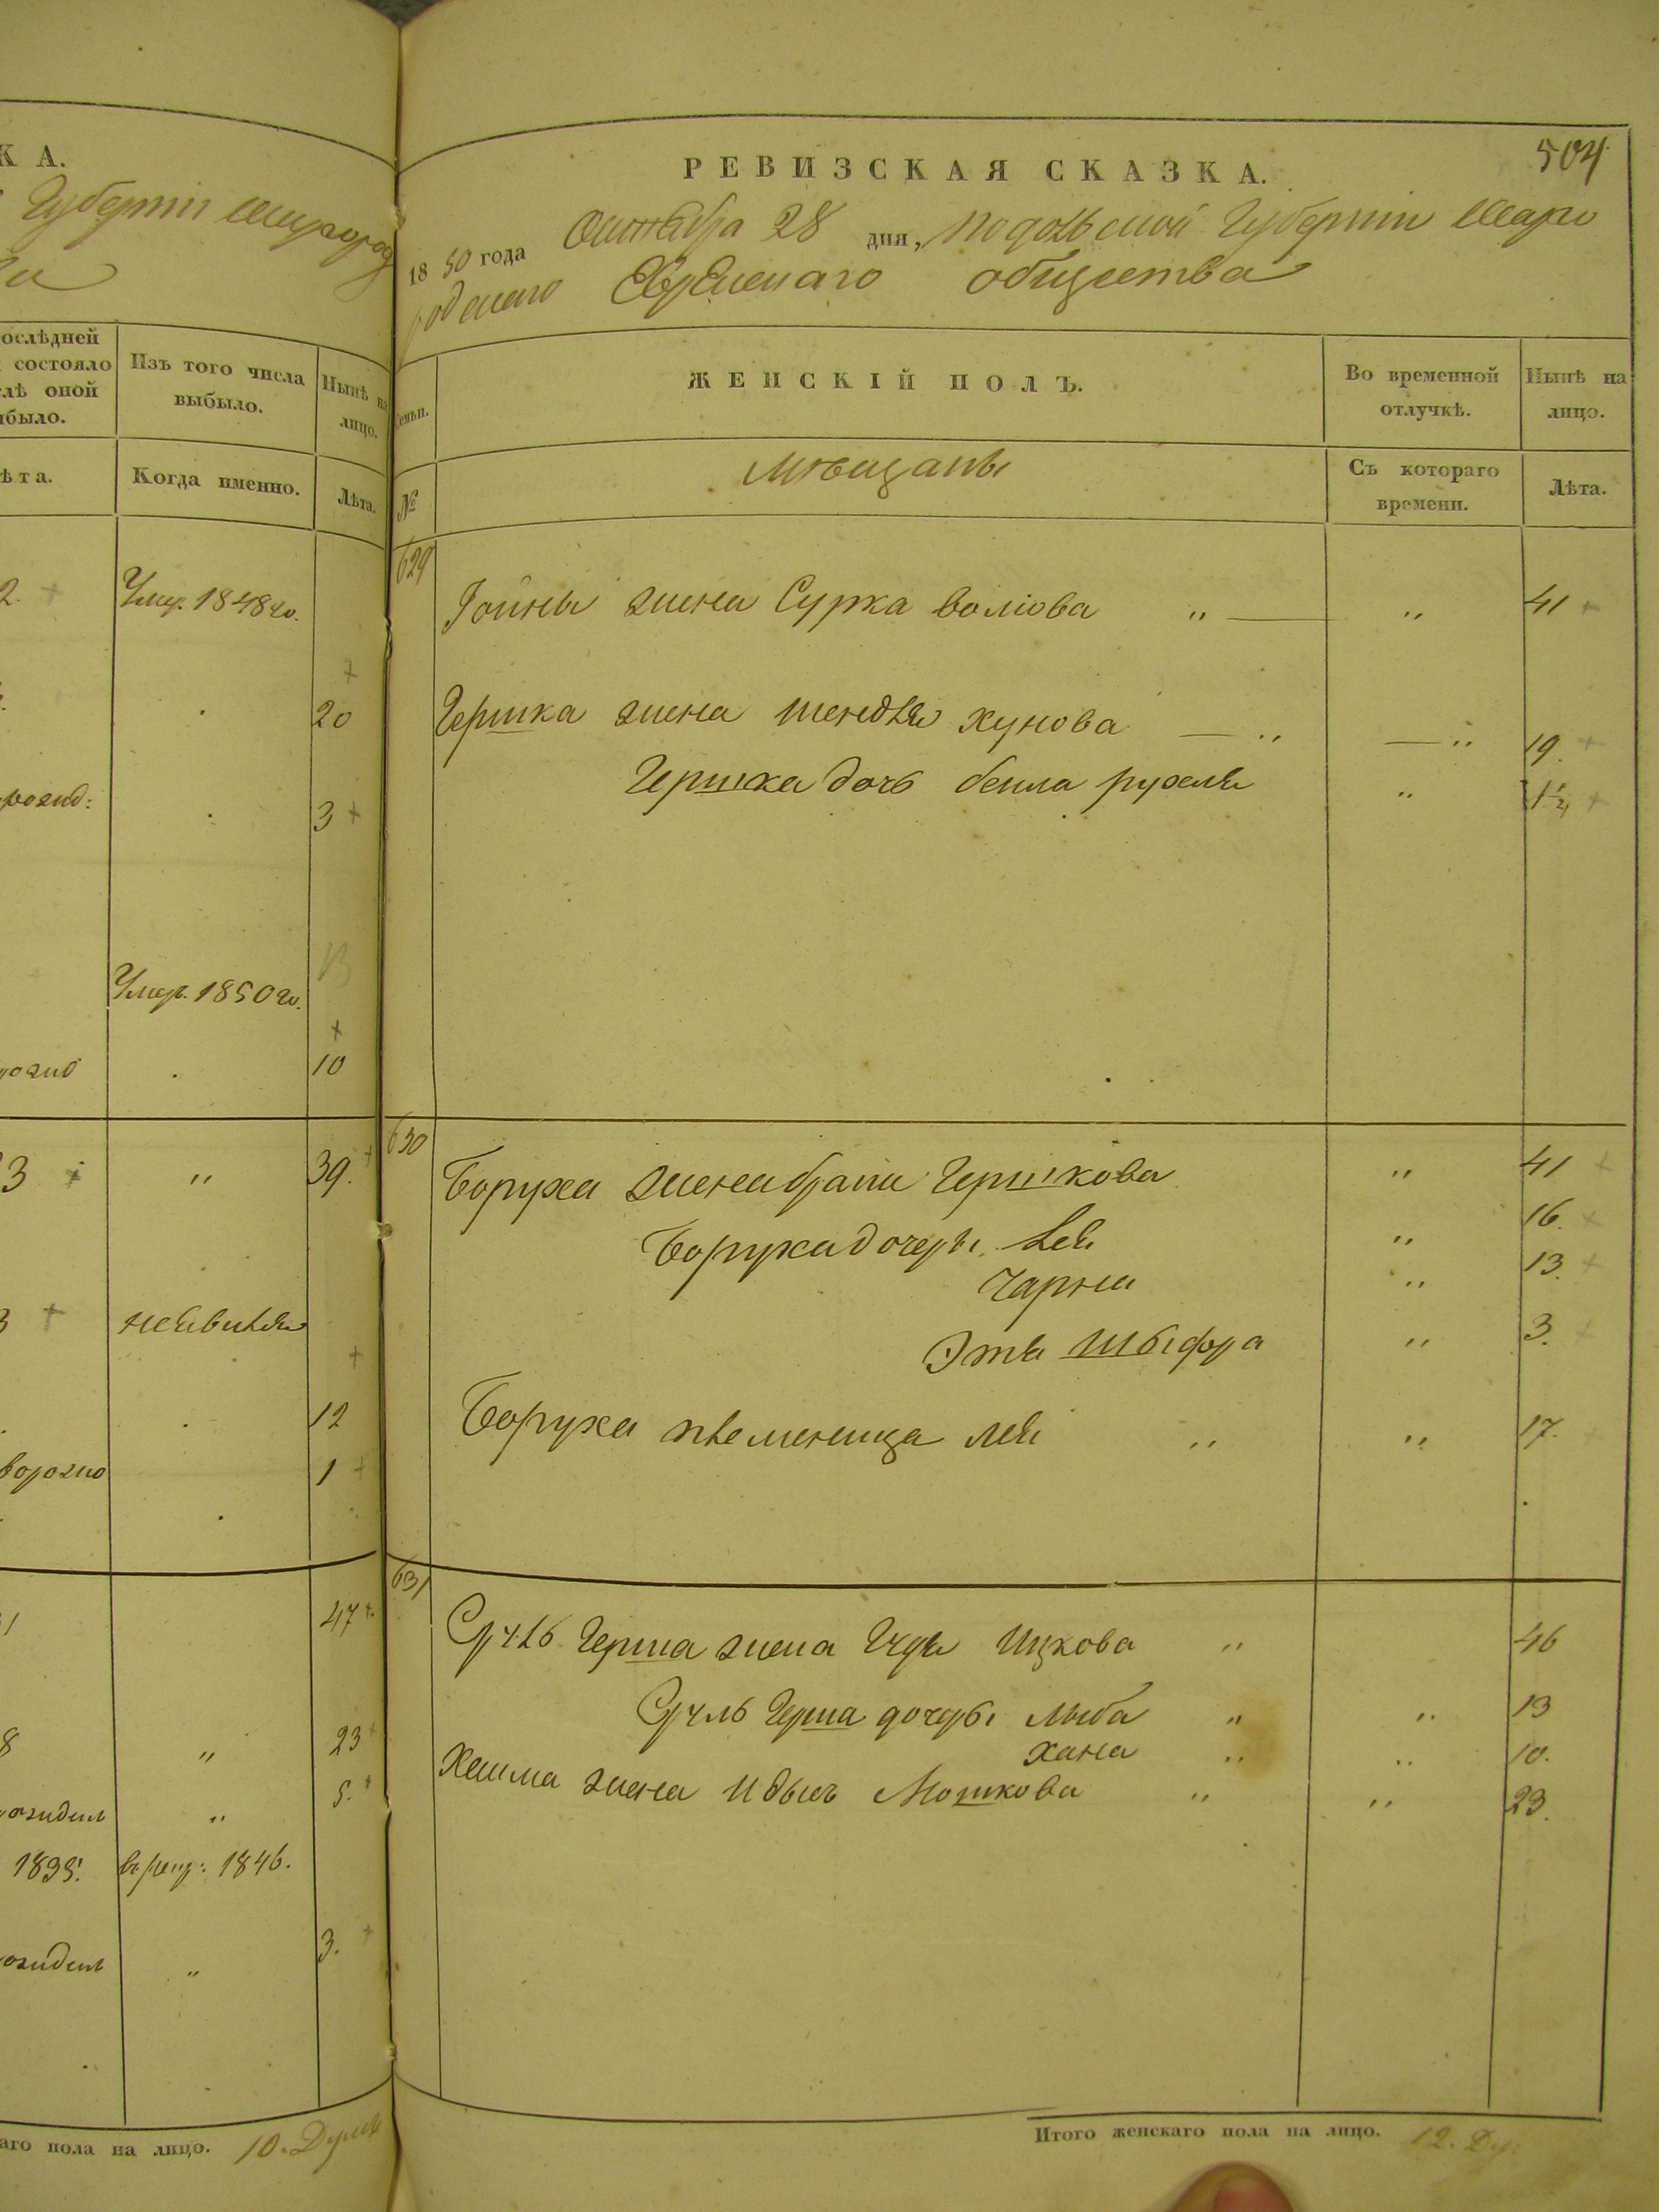 К А.
Губерніи Шаргород
ослѣдней
состояло
лѣ оной
было.
Изъ того числа
выбыло.
Нынѣ на
лицо.
ѣта.
Когда именно.
Лѣта.
Умер. 1848 го.
20
3
Умер. 1850 го.
10
3 " 39.
неявился
12
1
47
8 " 23
" 5.
1835. 1846.
" 3.
аго пола на лицо. 10. Душъ
504
РЕВИЗСКАЯ СКАЗКА.
1850 года Октября 28 дня, Подольской Губерніи Шаро
родскаго Еврейскаго общества
Семьи.
ЖЕНСКІЙ ПОЛЪ.
Во временной
отлучкѣ.
Нынѣ на
лицо.
№
Мѣщаны
Съ котораго
времени.
Лѣта.
629
Іойны жена Сурка Волкова " " 41
Гершка жена Шендля Хунова " " 19.
Гершка дочь Бейла Рухля " 1½
630
Боруха жена Брана Гершкова " 41
Боруха дочери Лея " 16.
Чарна " 13.
Этя Шыфра " 3.
Боруха племеница Лея " " 17.
631
Сруль Герша жена Гудя Ицкова " 46
Сруль Герша дочеры Лыба " " 13
Хана " " 10.
Хаима жена Идысъ Мошкова " " 23.
Итого женскаго пола на лицо. 12. Ду: